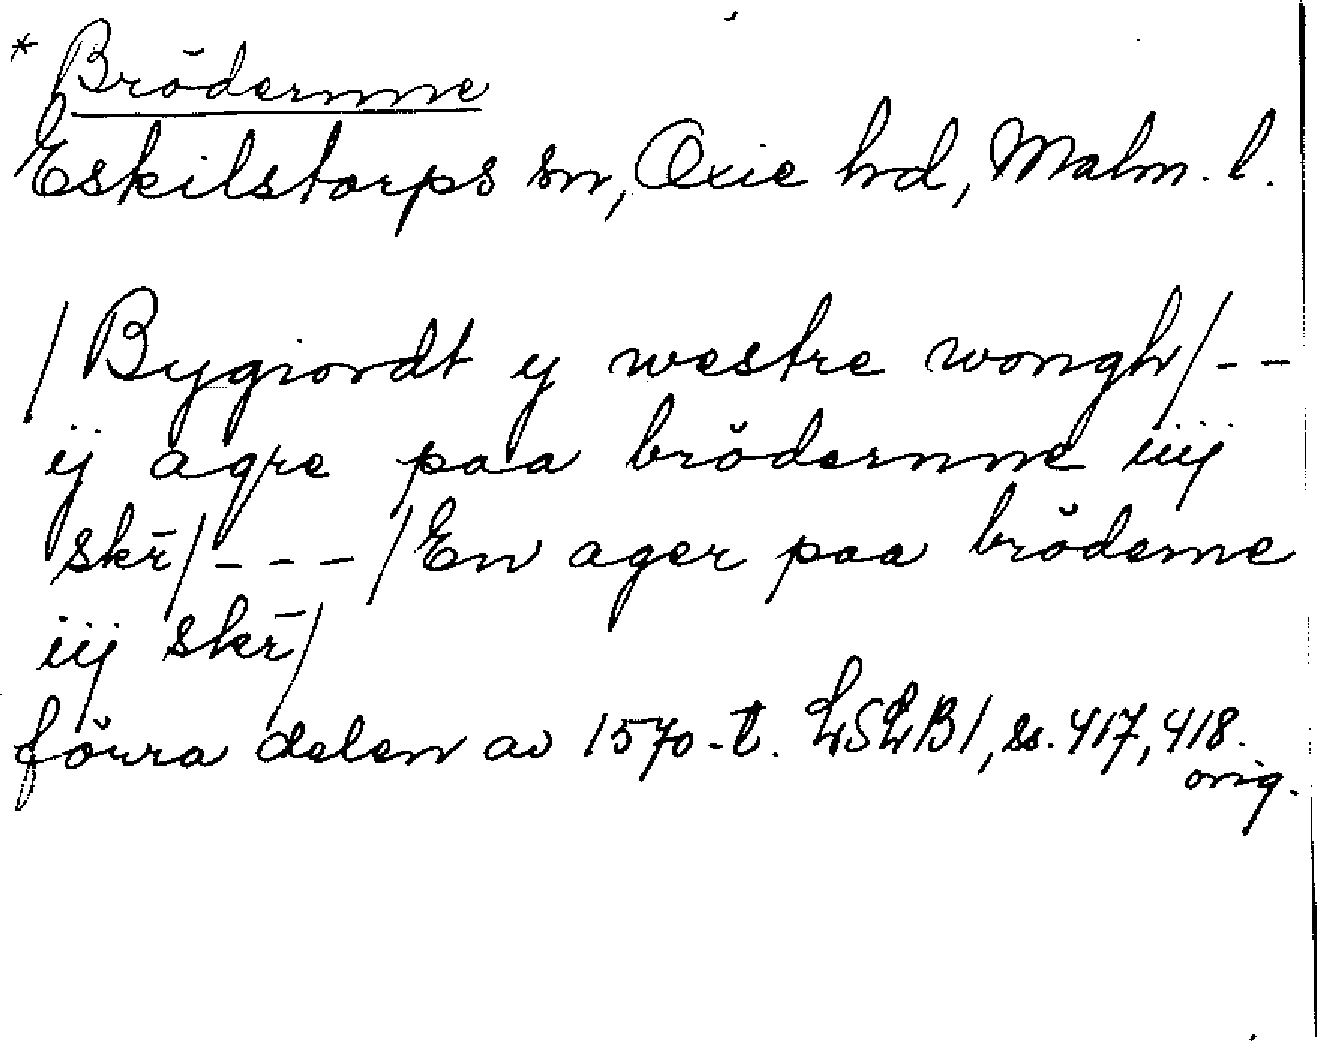 * Brödernne
Eskilstorps sn, Oxie hd, Malm. l.
/Bygiordt y westre wongh/--
ij agre paa brödernne iiij
skr̄/---/En ager paa bröderne
iij skr̄/
förra delen av 1570-t. LSLB1, ss. 417, 418.
orig.